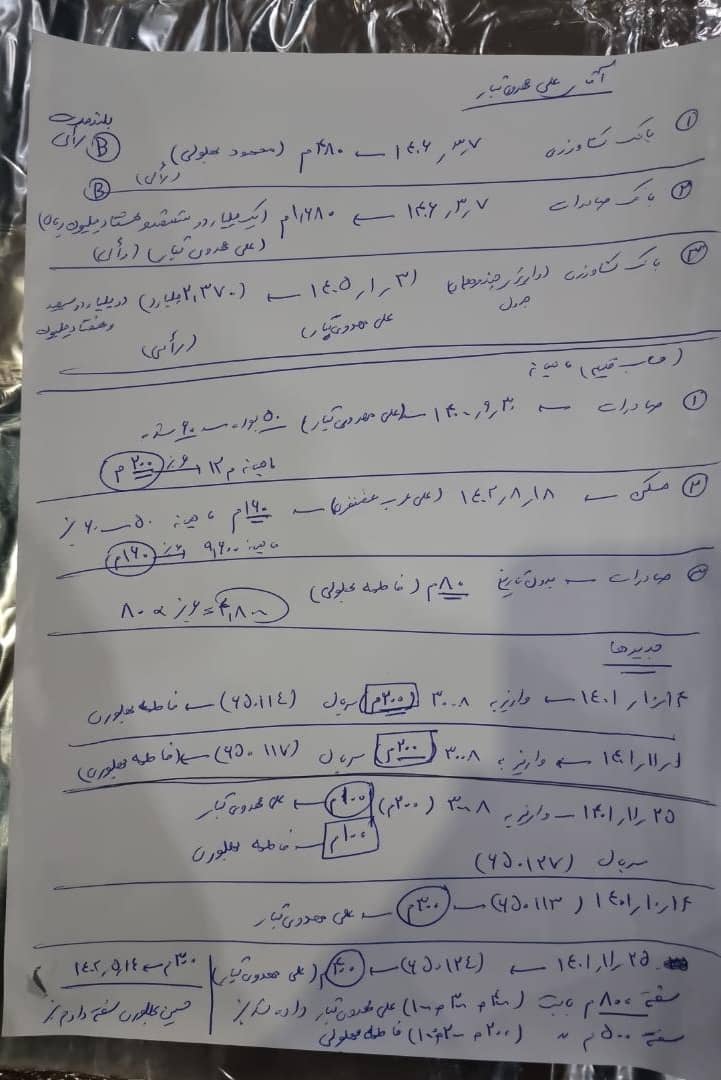 آقای علی مهدوی تبار
بلندمدت
① بانک کشاورزی ۱۴۰۶٫۳٫۷ ← ۴۸۰م (محمود بهلولی) Ⓑ
② بانک صادرات ۱۴۰۶٫۳٫۷ ← ۱٫۶۸۰م (یک میلیارد و ششصد و هشتاد میلیون ریال) Ⓑ
(علی مهدوی تبار)
③ بانک کشاورزی ۱۴۰۵٫۱٫۳۱ ← (۲٫۳۷۰میلیارد) دو میلیارد و سیصد
و هفتاد میلیون
جدول علی مهدوی تبار
(حساب قدیم) ماهیانه
① صادرات ← ۱۴۰۰٫۹٫۳۰ ← (علی مهدوی تبار) ۵۰ بود ← ۶۰ شد
ماهیانه ۱۲م ← ۲۰۰م
② مسکن ← ۱۴۰۲٫۸٫۱۸ (علی عرب غضنفری) ← ۱۶۰م ماهیانه ۵۰ ← ۶۰
ماهیانه ۹٫۶۰۰ ← ۱۶۰م
③ صادرات ← بدون تاریخ ۸۰م (فاطمه بهلولی)
۸۰ ∝ ۶٪ = ۴٫۸۰۰
جدیدها
۱۴۰۱٫۱۰٫۴ ← واریز به ۳۰۰۸ (۲۰۰م) سریال (۶۵۰۱۱۴) ← فاطمه بهلوری
۱۴۰۱٫۱۱٫۱ ← واریز به ۳۰۰۸ (۲۰۰م) سریال (۶۵۰۱۱۷) ← (فاطمه بهلوری)
۱۴۰۱٫۱۱٫۲۵ ← واریز به ۳۰۰۸ (۲۰۰م) ۱۰۰م ← علی مهدوی تبار
۱۰۰م ← فاطمه بهلوری
سریال (۶۵۰۱۲۷)
۱۴۰۱٫۱۰٫۴ (۶۵۰۱۱۳) ← ۳۰۰م ← علی مهدوی تبار
۱۴۰۱٫۱۱٫۲۵ ← (۶۵۰۱۲۴) ← ۴۰۰م (علی مهدوی تبار)
سفته ۸۰۰م بابت (۴۰۰م ۳۰۰م ۱۰۰م) علی مهدوی تبار داده شد
سفته ۵۰۰م " (۲۰۰م ۲۰۰م ۱۰۰م) فاطمه بهلولی
۳۰۰م ← ۱۴۰۲٫۵٫۱۴
حسین بهلوری سفته دادم